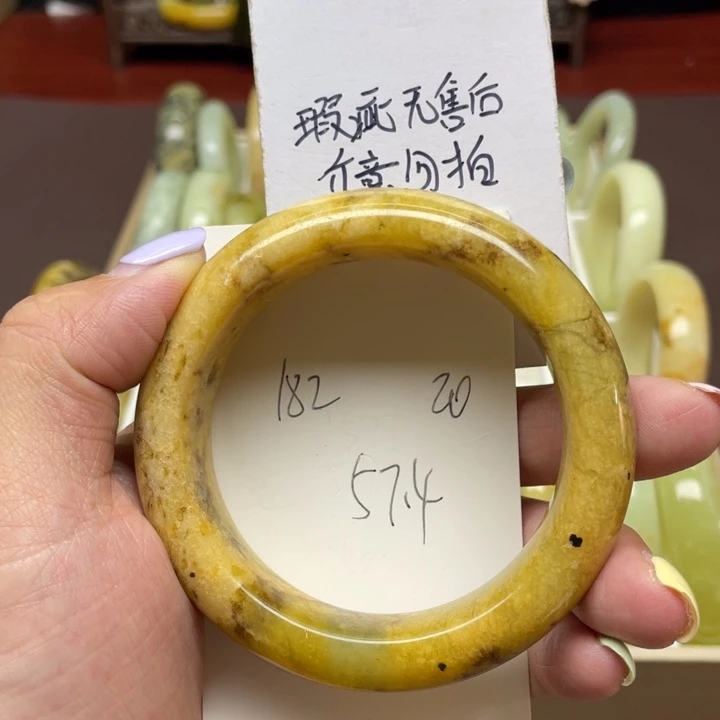 瑕疵无售后
介意勿拍
182 20
57.4